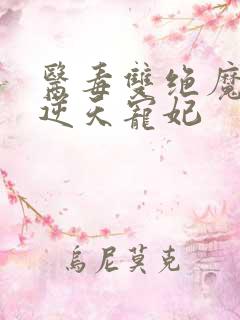 醫毒雙绝魔
逆天寵妃
烏尼莫克